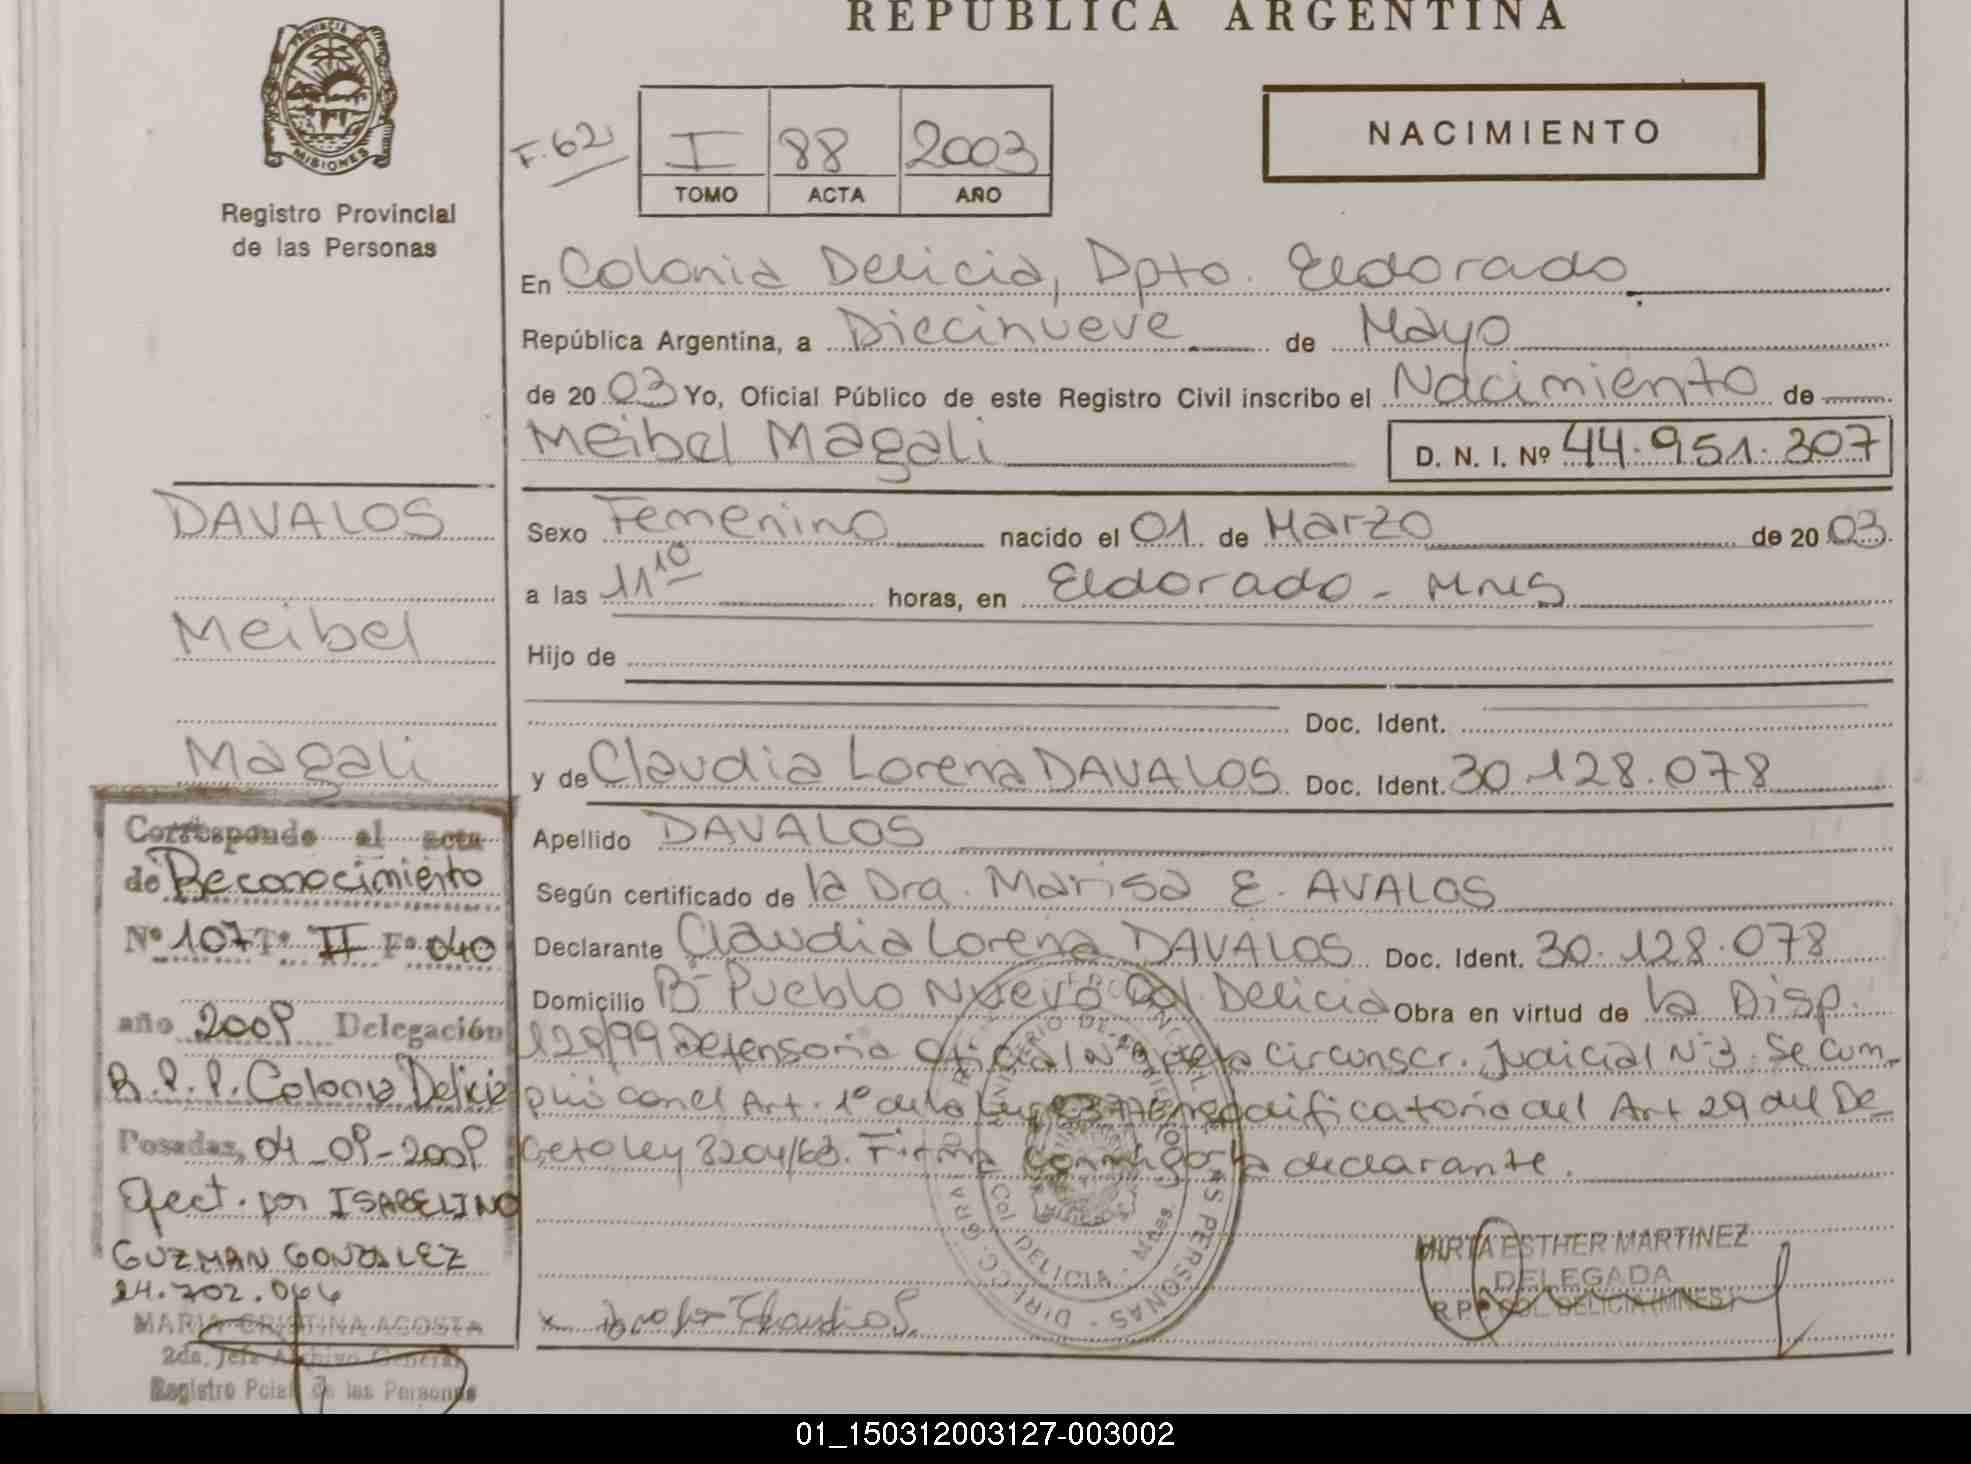 REPUBLICA ARGENTINA
PROVINCIA DE
MISIONES
Registro Provincial
de las Personas
F. 62
I 88 2003
TOMO ACTA AÑO
NACIMIENTO
En Colonia Delicia, Dpto. Eldorado
República Argentina, a Diecinueve de Mayo
de 20 03 Yo, Oficial Público de este Registro Civil inscribo el Nacimiento de
Meibel Magali D. N. I. Nº 44.951.307
DAVALOS
Meibel
Magali
Sexo Femenino nacido el 01 de Marzo de 20 03
a las 11 10 horas, en Eldorado - MNES
Hijo de
Doc. Ident.
y de Claudia Lorena DAVALOS Doc. Ident. 30.128.078
Apellido DAVALOS
Según certificado de la Dra. Marisa E. AVALOS
Declarante Claudia Lorena DAVALOS Doc. Ident. 30.128.078
Domicilio Bº Pueblo Nuevo Col. Delicia Obra en virtud de la Disp.
120/99 Defensoria Oficial Nº de la Circunscr. Judicial Nº 3. Se cum-
plió con el Art. 1º de la Ley modificatoria del Art 29 del De-
creto ley 8204/63. Firma conmigo la declarante.
Corresponde al acta
de Reconocimiento
Nº 107 Tº II Fº 040
año 2009 Delegación
R.P.P. Colonia Delicia
Posadas, 04-09-2009
Efect. por ISABELINO
GUZMAN GONZALEZ
24.702.066
MARIA CRISTINA ACOSTA
2da. Jefa Archivo General
Registro Pcial de las Personas
MIRTA ESTHER MARTINEZ
DELEGADA
R.P.P. COL. DELICIA (MNES)
01_150312003127-003002